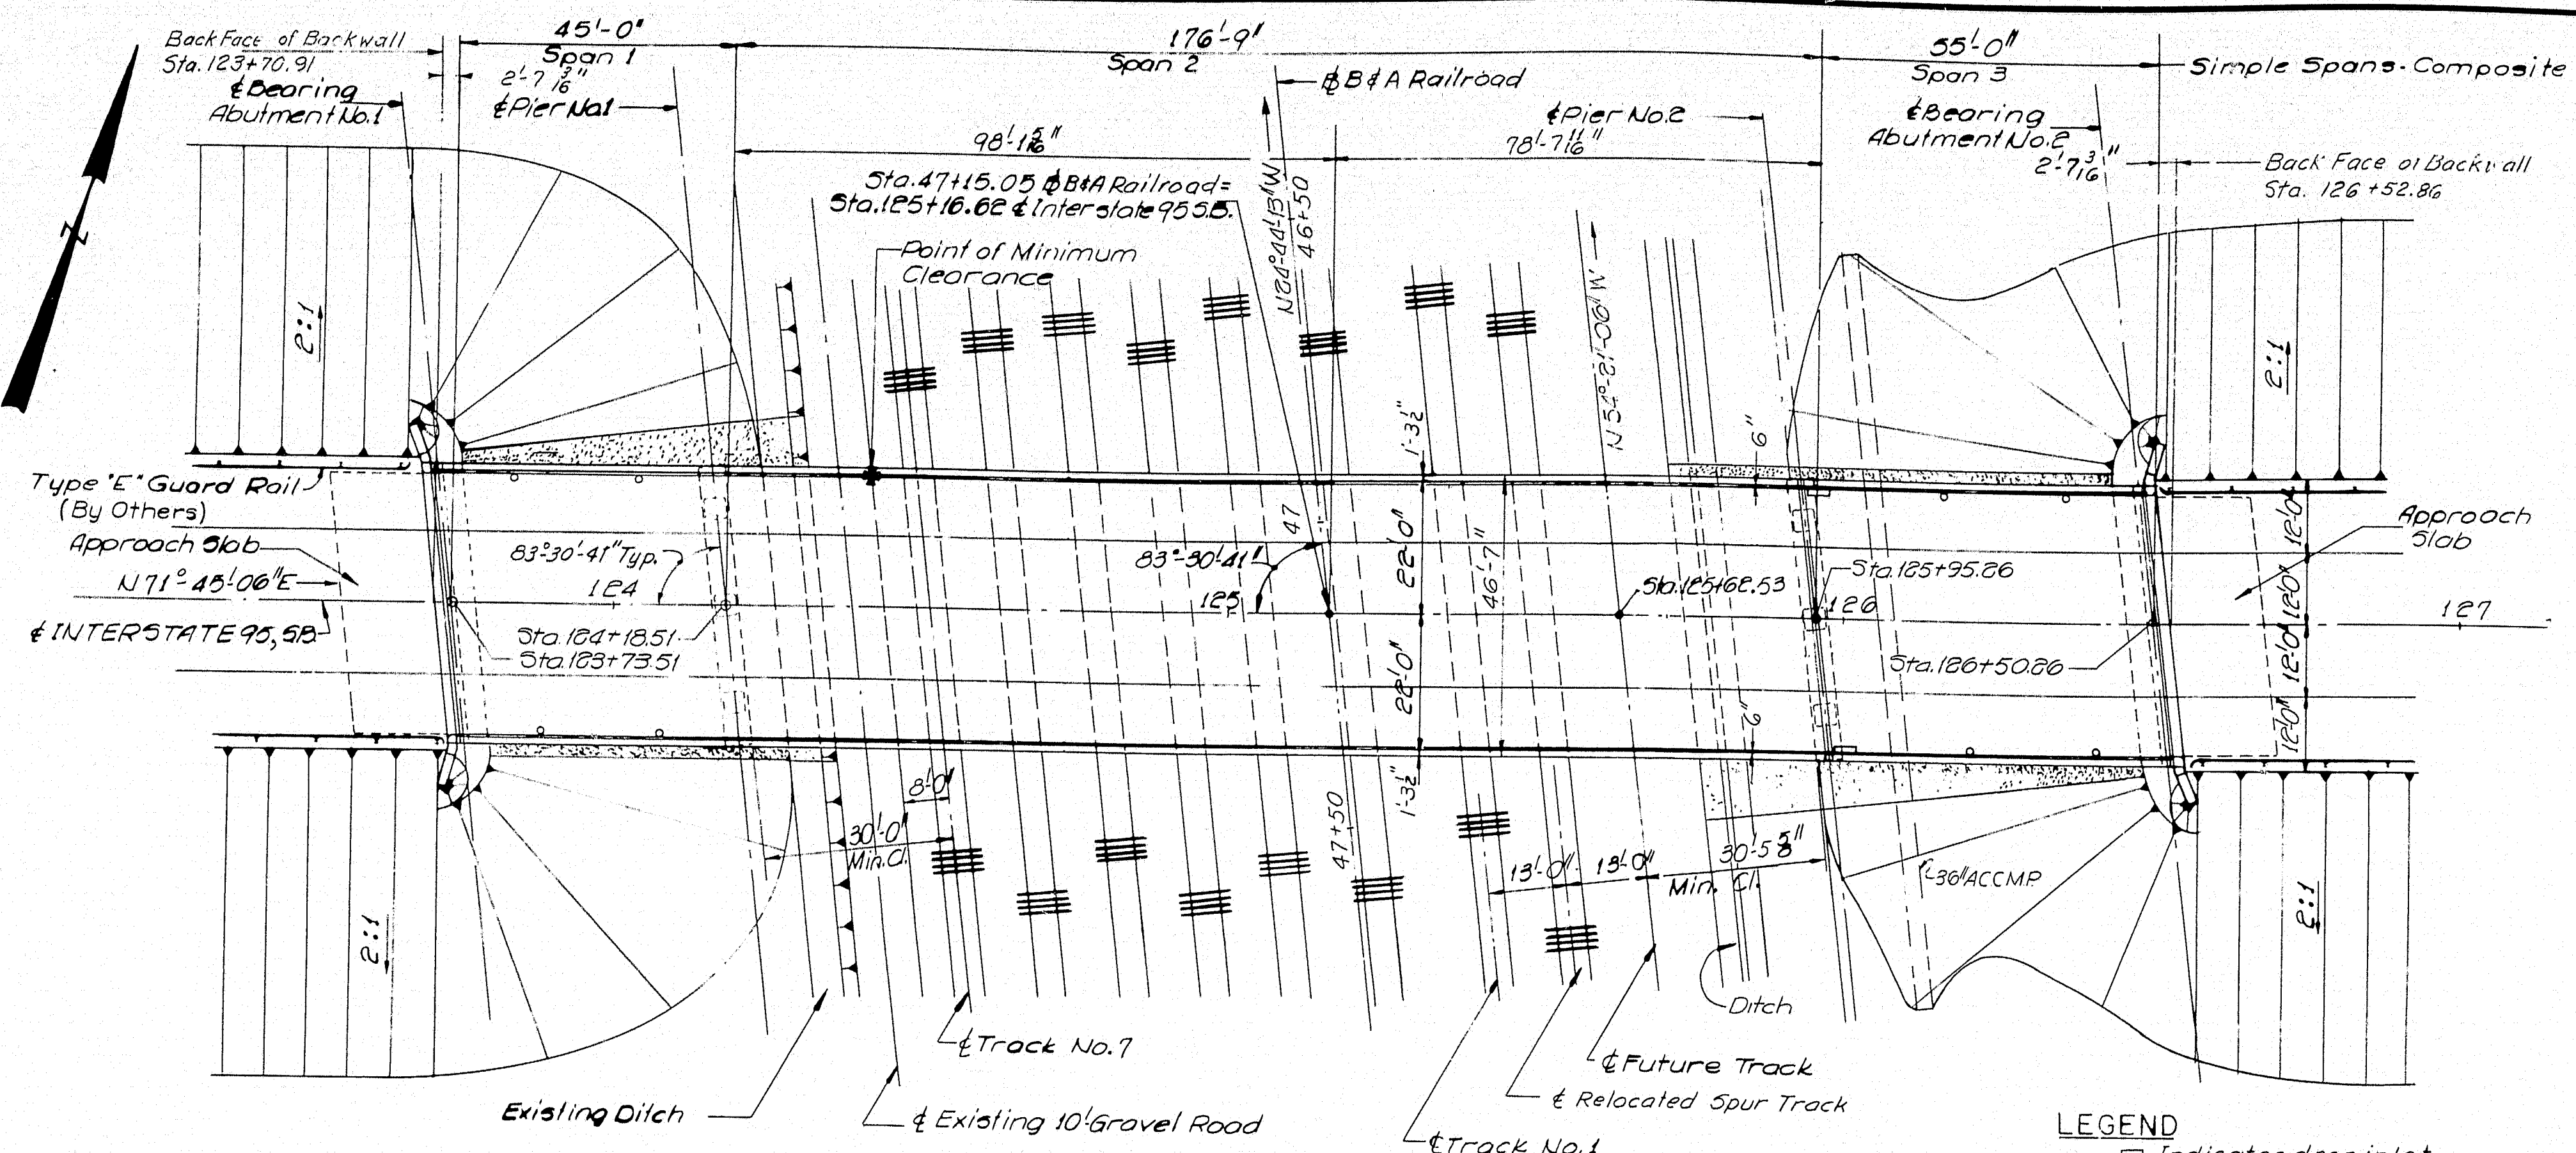 Back Face of Backwall
Sta. 123+70.91
℄ Bearing
Abutment No.1
45'-0"
Span 1
2'-7 3/16"
℄ Pier No.1
176'-9"
Span 2
℄ B & A Railroad
98'-1 5/16"
78'-7 11/16"
℄ Pier No.2
55'-0"
Span 3
Simple Spans-Composite
℄ Bearing
Abutment No.2
2'-7 3/16"
Back Face of Backwall
Sta. 126+52.86
Sta. 47+15.05 ℄ B&A Railroad=
Sta. 125+16.62 ℄ Interstate 95 S.B.
Point of Minimum
Clearance
N24°-44'-13"W
46+50
N54°-21'-06"W
Z
2:1
2:1
1'-3½"
6"
Type "E" Guard Rail
(By Others)
Approach Slab
N 71°-45'-06"E
℄ INTERSTATE 95, S.B.
83°-30'-41" Typ.
124
Sta. 124+18.51
Sta. 123+73.51
83°-30'-41"
47
125
22'-0"
22'-0"
46'-7"
Sta. 125+62.53
Sta. 125+95.26
126
Sta. 126+50.26
12'-0"
12'-0"
12'-0"
12'-0"
Approach
Slab
127
6"
1'-3½"
8'-0"
30'-0"
Min. Cl.
47+50
13'-0"
13'-0"
30'-5 5/8"
Min. Cl.
36" A.C.C.M.P.
2:1
2:1
Ditch
℄ Track No.7
℄ Future Track
℄ Relocated Spur Track
Existing Ditch
℄ Existing 10' Gravel Road
℄ Track No.1
LEGEND
Indicates drop inlet